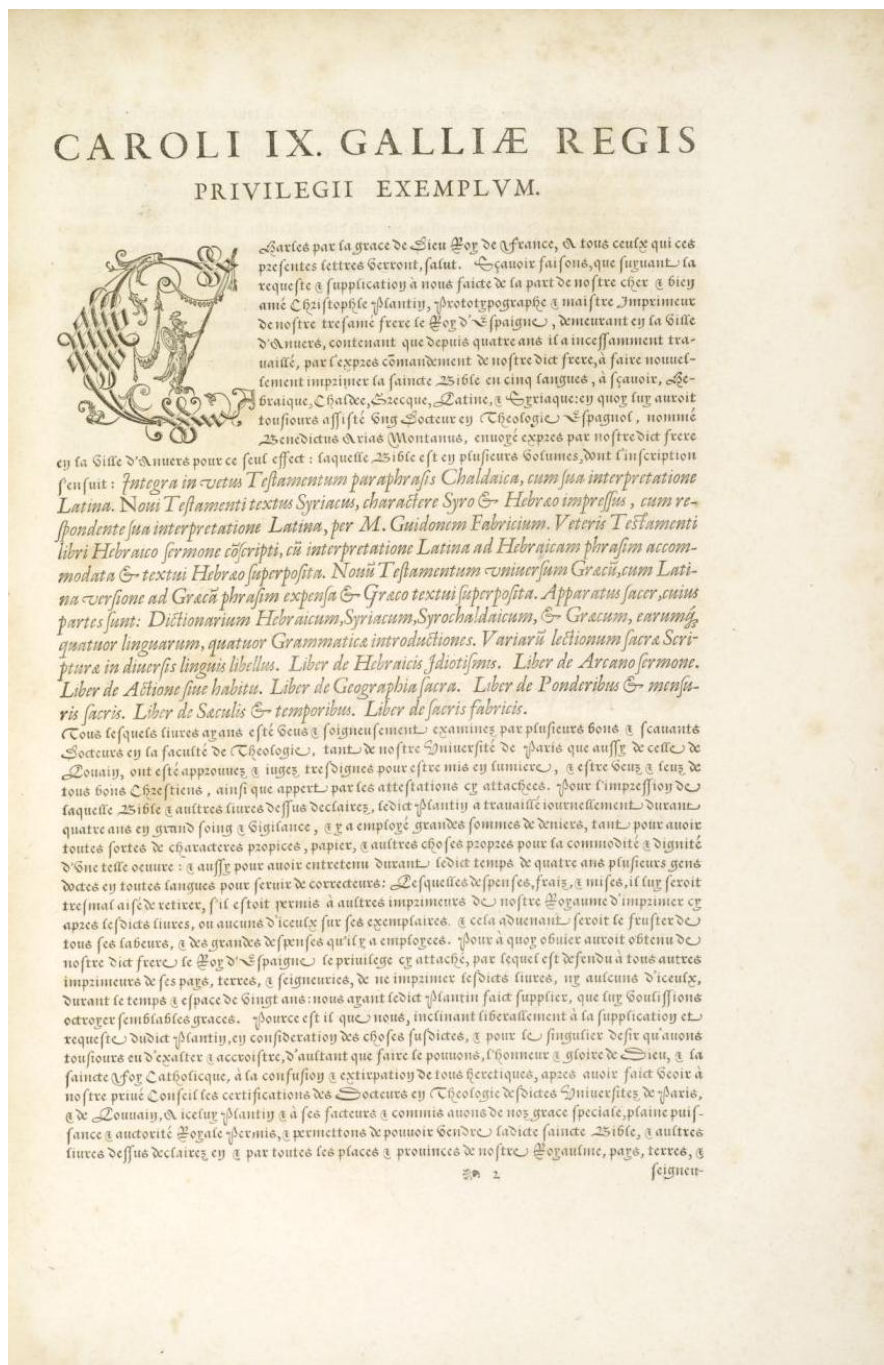 CAROLI IX. GALLIÆ REGIS
PRIVILEGII EXEMPLVM.
Charles par la grace de Dieu Roy de France, A tous ceulx qui ces
presentes lettres verront, salut. Sçavoir faisons, que suyuant la
requeste & supplication à nous faicte de la part de nostre cher & bien
amé Christophle Plantin, Prototypographe & maistre Imprimeur
de nostre tresamé frere le Roy d'Espaigne, demeurant en la ville
d'Anuers, contenant que depuis quatre ans il a incessamment tra-
uaillé, par l'expres cõmandement de nostre dict frere, à faire nouuel-
lement imprimer la saincte Bible en cinq langues, à sçauoir, He-
braique, Chaldee, Grecque, Latine, & Syriaque: en quoy luy auroit
tousiours assisté vng Docteur en Theologie Espagnol, nommé
Benedictus Arias Montanus, enuoyé expres par nostre dict frere
en la ville d'Anuers pour ce seul effect: laquelle Bible est en plusieurs volumes, dont l'inscription
s'ensuit: Integra in vetus Testamentum paraphrasis Chaldaica, cum sua interpretatione
Latina. Noui Testamenti textus Syriacus, charactere Syro & Hebræo impressus, cum re-
spondente sua interpretatione Latina, per M. Guidonem Fabricium. Veteris Testamenti
libri Hebraico sermone cõscripti, cũ interpretatione Latina ad Hebraicam phrasim accom-
modata & textui Hebræo superposita. Nouũ Testamentum vniuersum Græcũ, cum Lati-
na versione ad Græcã phrasim expensa & Græco textui superposita. Apparatus sacer, cuius
partes sunt: Dictionarium Hebraicum, Syriacum, Syrochaldaicum, & Græcum, earumq́;
quatuor linguarum, quatuor Grammaticæ introductiones. Variarũ lectionum sacræ Scri-
pturæ in diuersis linguis libellus. Liber de Hebraicis Idiotismis. Liber de Arcano sermone.
Liber de Actione siue habitu. Liber de Geographia sacra. Liber de Ponderibus & mensu-
ris sacris. Liber de Sæculis & temporibus. Liber de sacris fabricis.
Tous lesquels liures ayans esté veus & soigneusement examinez par plusieurs bons & scauants
Docteurs en la faculté de Theologie, tant de nostre Vniuersité de Paris que aussy de celle de
Louain, ont esté approuuez & iugez tresdignes pour estre mis en lumiere, & estre veuz & leuz de
tous bons Chrestiens, ainsi que appert par les attestations cy attachees. Pour l'impression de
laquelle Bible & aultres liures dessus declairez, ledict Plantin a trauaillé iournellement durant
quatre ans en grand soing & vigilance, & y a employé grandes sommes de deniers, tant pour auoir
toutes sortes de characteres propices, papier, & aultres choses propres pour la commodité & dignité
d'vne telle oeuure: & aussy pour auoir entretenu durant ledict temps de quatre ans plusieurs gens
doctes en toutes langues pour seruir de correcteurs: Lesquelles despenses, fraiz, & mises, il luy seroit
tresmal aisé de retirer, s'il estoit permis à aultres imprimeurs de nostre Royaume d'imprimer cy
apres lesdicts liures, ou aucuns d'iceulx sur ses exemplaires. & cela aduenant seroit le fruster de
tous ses labeurs, & des grandes despenses qu'il y a employees. Pour à quoy obuier auroit obtenu de
nostre dict frere le Roy d'Espaigne le priuilege cy attaché, par lequel est defendu à tous autres
imprimeurs de ses pays, terres, & seigneuries, de ne imprimer lesdicts liures, ny aulcuns d'iceulx,
durant le temps & espace de vingt ans: nous ayant ledict Plantin faict supplier, que luy voulissions
octroyer semblables graces. Pource est il que nous, inclinant liberallement à la supplication et
requeste dudict Plantin, en consideration des choses susdictes, & pour le singulier desir qu'auons
tousiours eu d'exalter & accroistre, d'aultant que faire le pouuons, l'honneur & gloire de Dieu, & la
saincte Foy Catholicque, à la confusion & extirpation de tous heretiques, apres auoir faict veoir à
nostre priué Conseil les certifications des Docteurs en Theologie desdictes Vniuersitez de Paris,
& de Louuain, A icelux Plantin & à ses facteurs & commis auons de noz grace speciale, plaine puis-
sance & auctorité Royale Permis, & permettons de pouuoir vendre ladicte saincte Bible, & aultres
liures dessus declairez en & par toutes les places & prouinces de nostre Royaulme, pays, terres, &
2 seigneu-